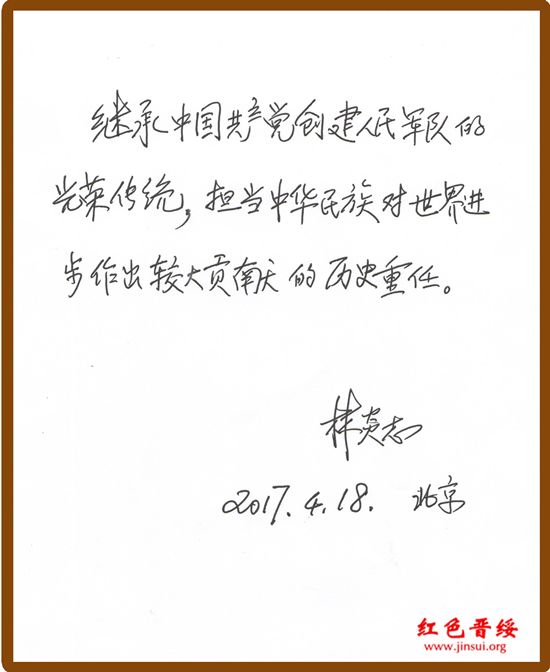 继承中国共产党创建人民军队的
光荣传统，担当中华民族对世界进
步作出较大贡献的历史重任。
林炎志
2017.4.18. 北京
红色晋绥
www.jinsui.org